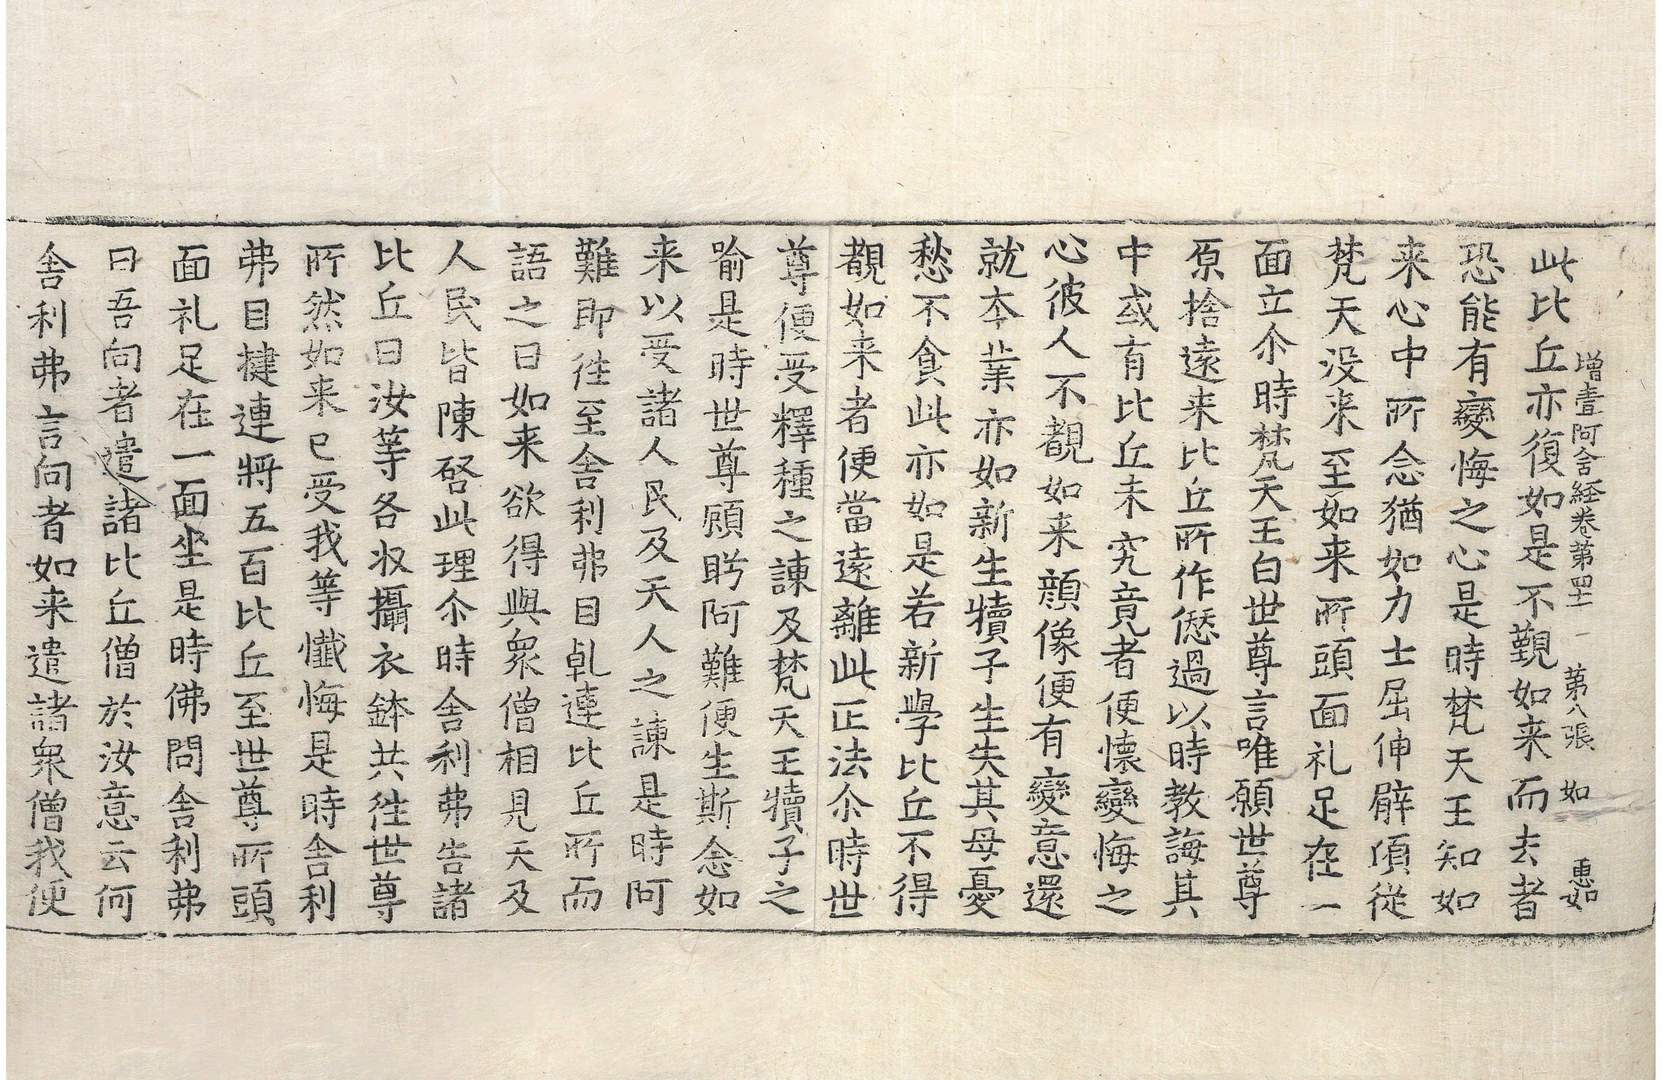 增壹阿含経卷第四十一 第八張 如 惠如
此比丘亦復如是不覲如来而去者
恐能有變悔之心是時梵天王知如
来心中所念猶如力士屈伸臂頃從
梵天没来至如来所頭面礼足在一
面立尒時梵天王白世尊言唯願世尊
原捨遠来比丘所作愆過以時教誨其
中或有比丘未究竟者便懷變悔之
心彼人不覩如来顔像便有變意還
就本業亦如新生犢子生失其母憂
愁不食此亦如是若新學比丘不得
覩如来者便當遠離此正法尒時世
尊便受釋種之諫及梵天王犢子之
喻是時世尊顧眄阿難便生斯念如
来以受諸人民及天人之諫是時阿
難即徃至舍利弗目乹連比丘所而
語之曰如来欲得與衆僧相見天及
人民皆陳啓此理尒時舍利弗告諸
比丘曰汝等各收攝衣鉢共徃世尊
所然如来已受我等懺悔是時舍利
弗目揵連將五百比丘至世尊所頭
面礼足在一面坐是時佛問舍利弗
曰吾向者遣諸比丘僧於汝意云何
舍利弗言向者如来遣諸衆僧我便